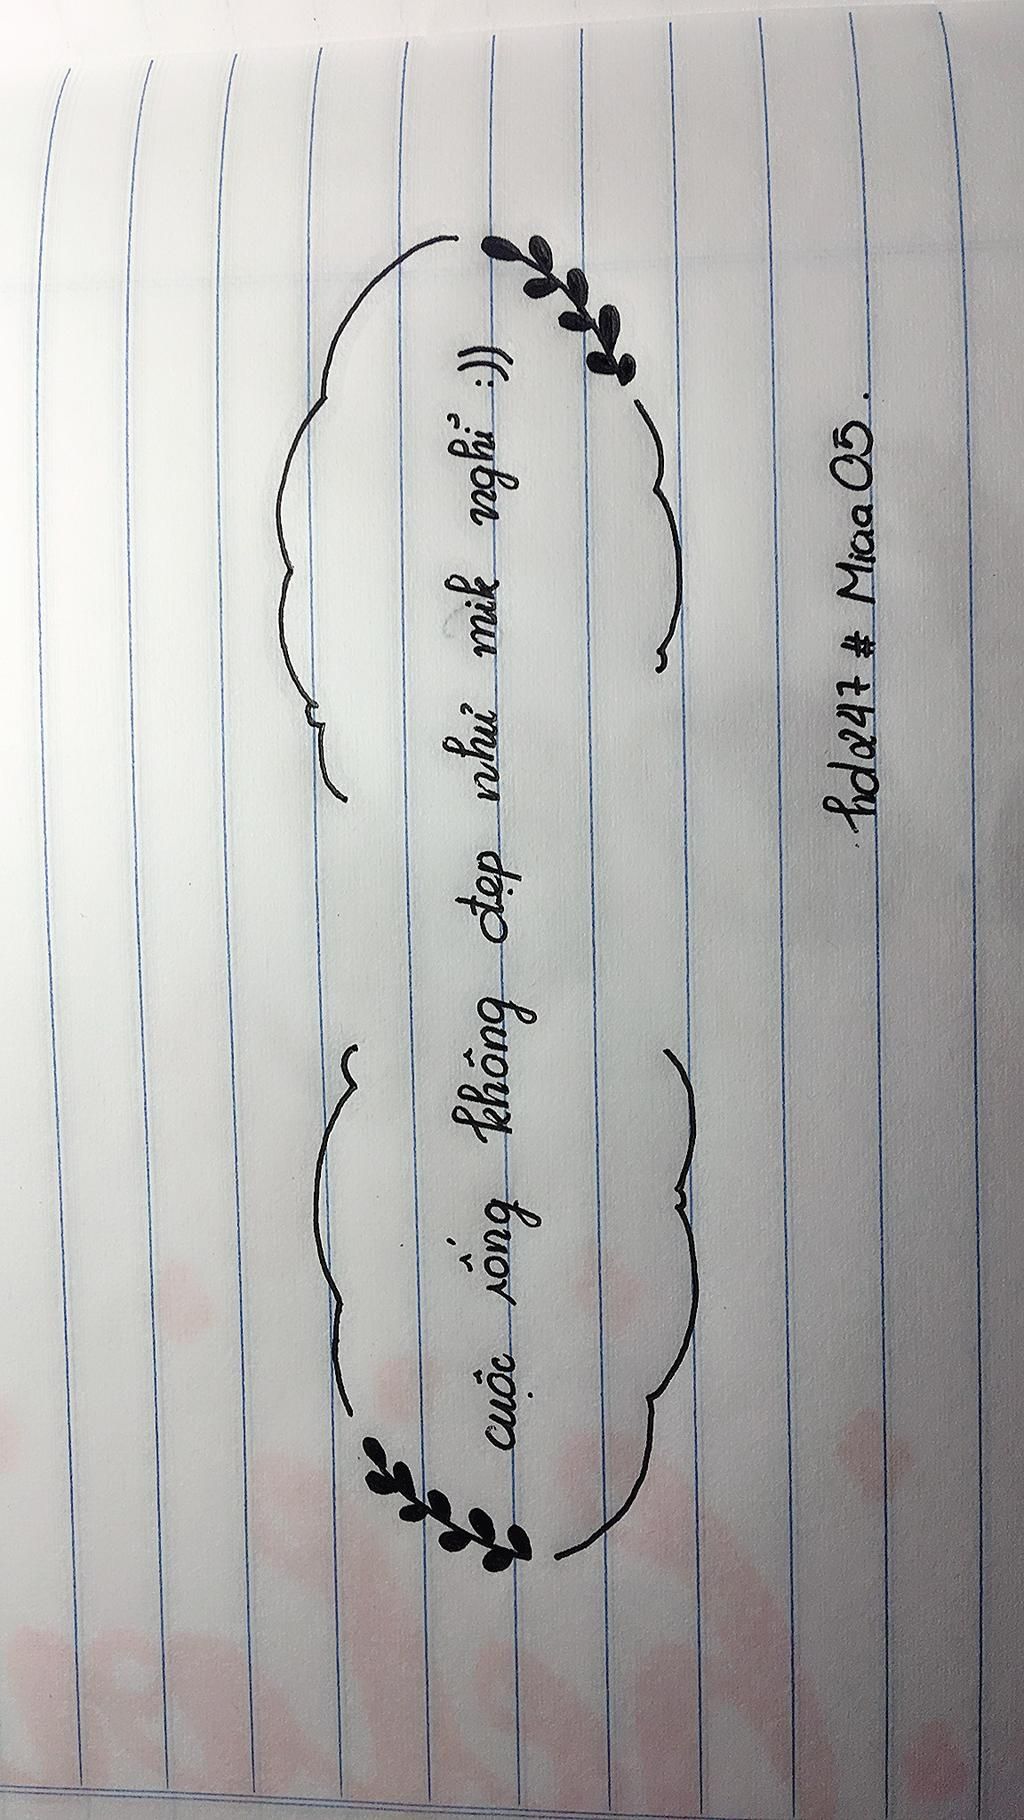 cuộc sống không đẹp như mik nghỉ :))
hda247 # Miaa05.